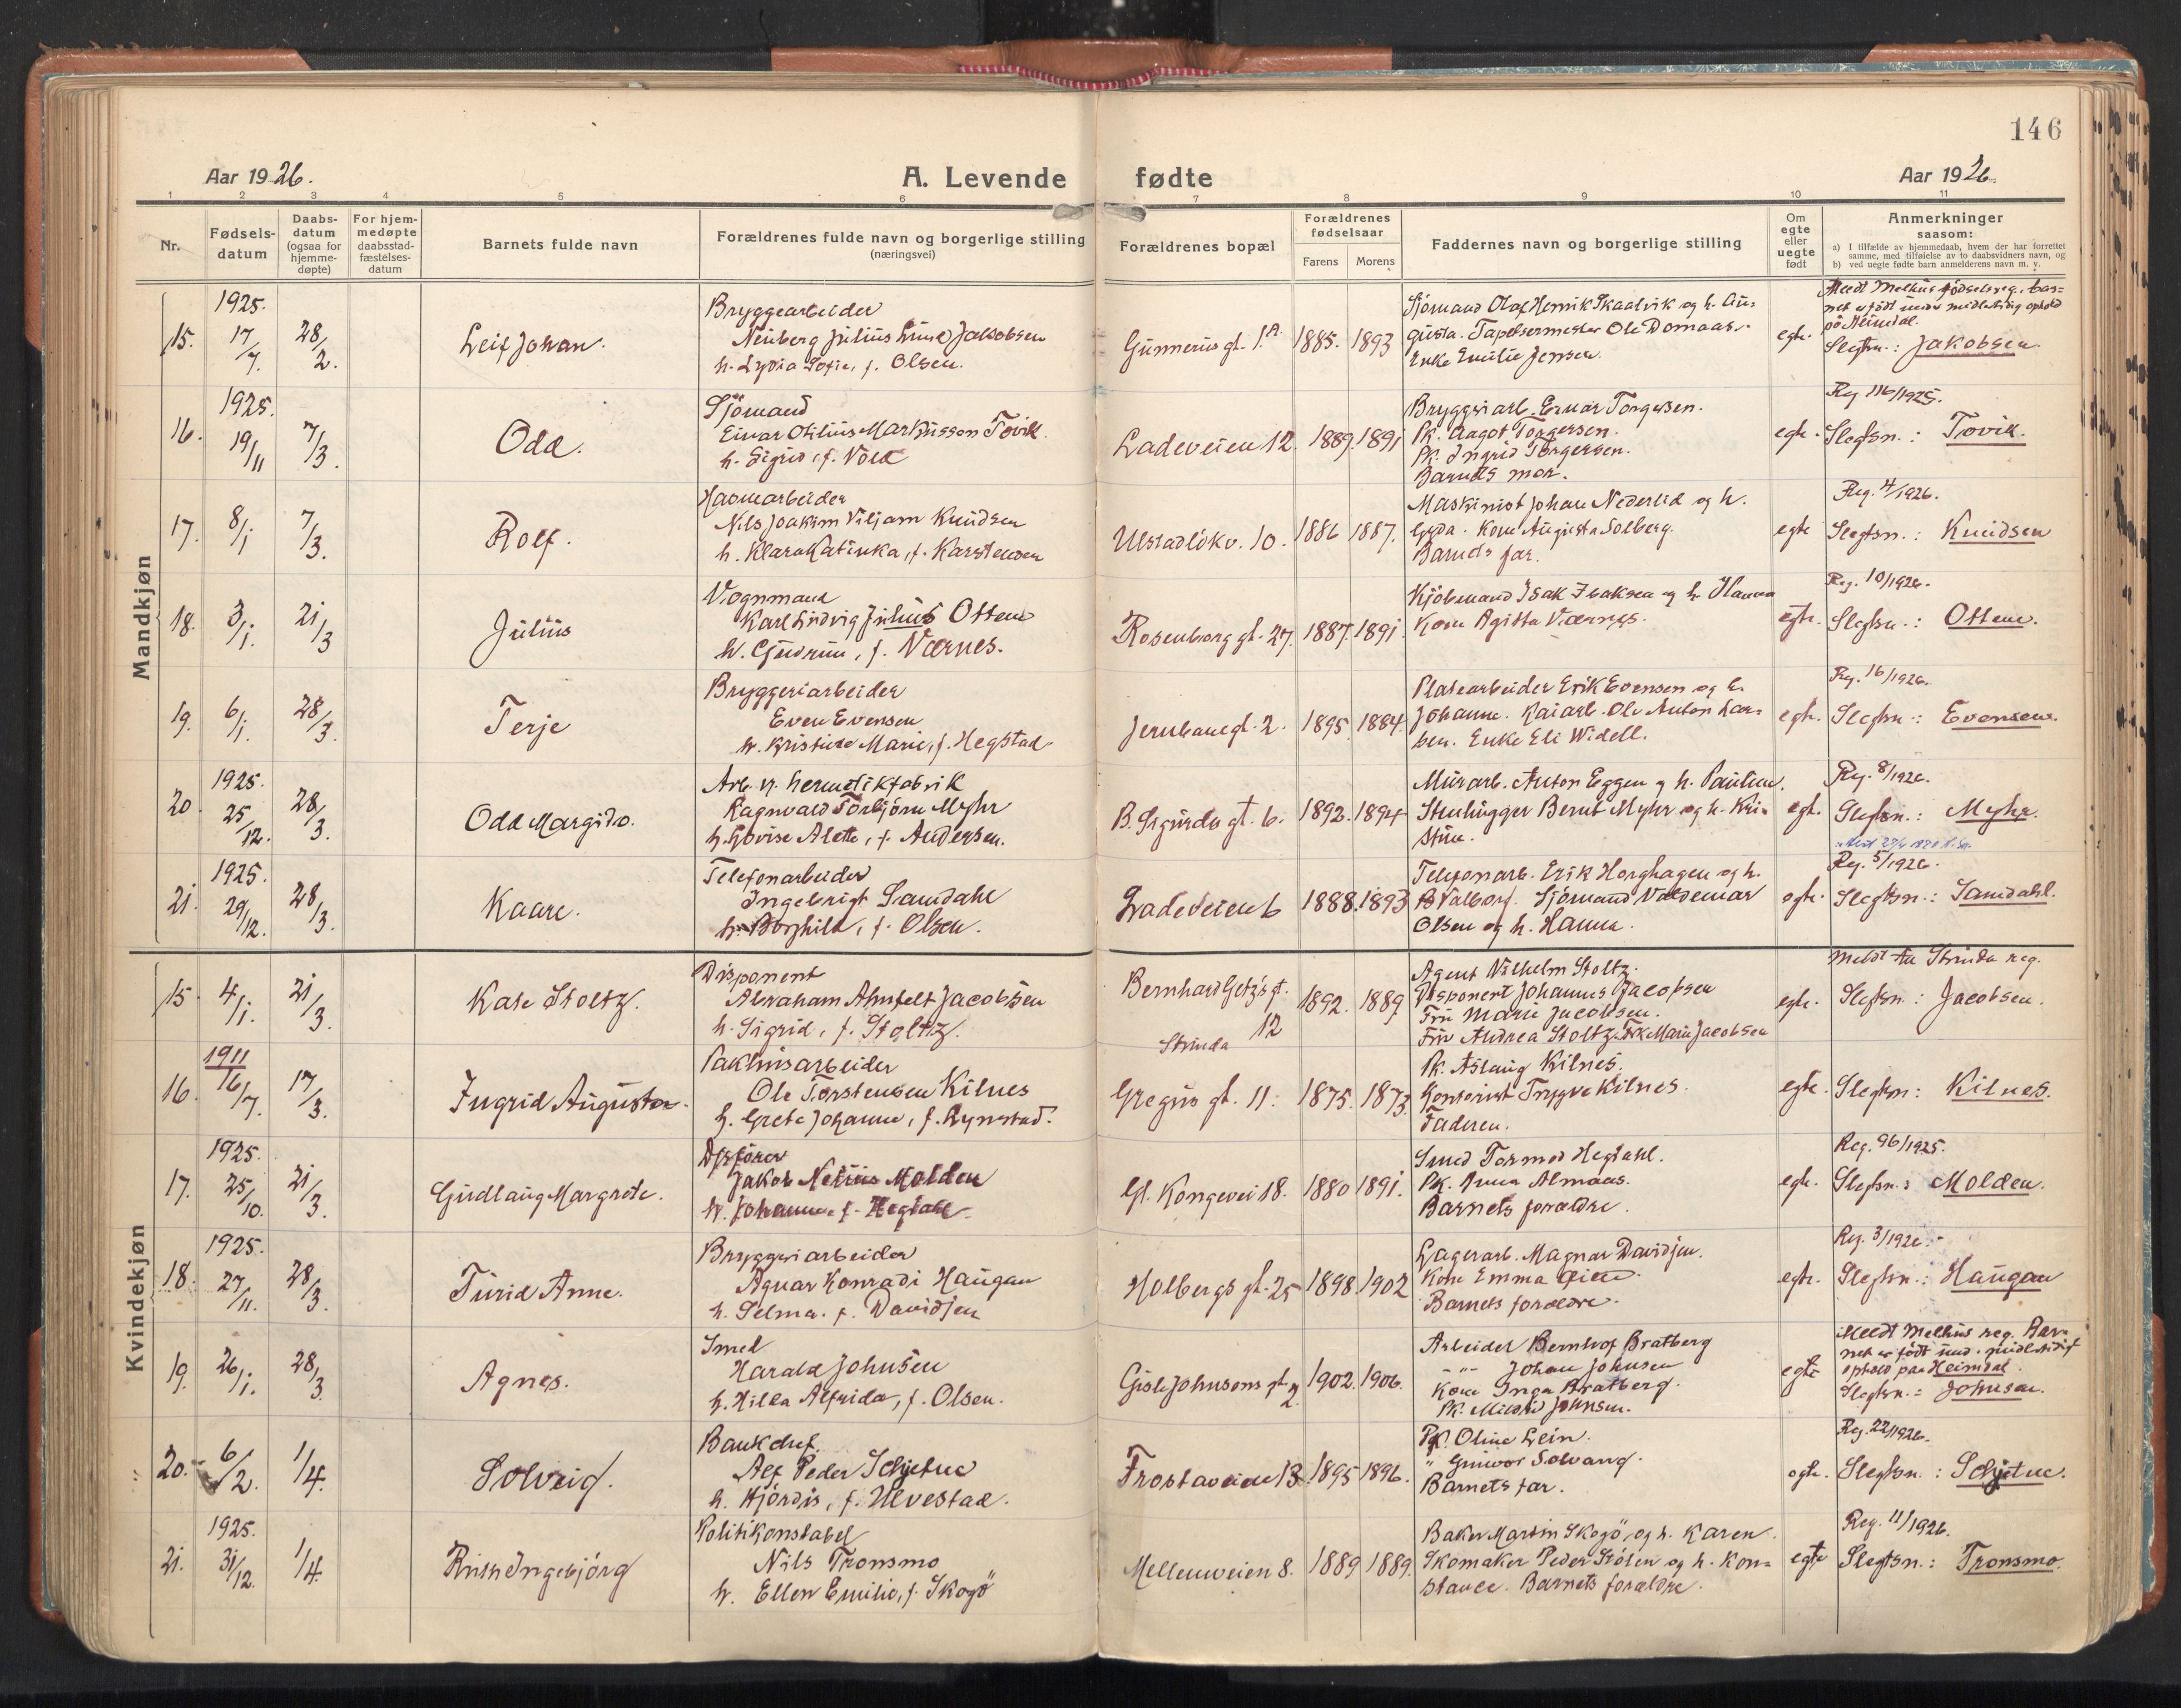 146
Aar 1926.
A. Levende fødte
Aar 1926.
1 2 3 4 5 6 7 8 9 10 11
Nr.
Fødsels-
datum
Daabs-
datum
(ogsaa for
hjemme-
døpte)
For hjem-
medøpte
daabsstad-
fæstelses-
datum
Barnets fulde navn
Forældrenes fulde navn og borgerlige stilling
(næringsvei)
Forældrenes bopæl
Forældrenes
fødselsaar
Farens Morens
Faddernes navn og borgerlige stilling
Om
egte
eller
uegte
født
Anmerkninger
saasom:
a) I tilfælde av hjemmedaab, hvem der har forrettet
samme, med tilføielse av to daabsvidners navn, og
b) ved uegte fødte barn anmelderens navn m. v.
Mandkjøn
15. 1925. 17/7. 28/2. Leif Johan.
Bryggearbeider
Neuberg Julius Jakobsen
h. Lydia Sofie, f. Olsen.
Gunnerus gt. 1A. 1885. 1893
Sjömand Olaf Henrik Skaalvik og h. Au-
gusta. Tapetsermester Ole Domaas.
Enke Emilie Jensen.
egte.
Meldt Melhus födselsreg. bar-
net er födt under midlertidig ophold
på Heimdal.
Slegtsn.: Jakobsen.
16. 1925. 19/11 7/3. Odd.
Sjömand
Einar Otilius Markusson Tovik.
h. Sigrid, f. Vold
Ladeveien 12. 1889. 1891
Bryggeriarb. Einar Torgersen.
Pk. Aagot Torgersen.
Pk. Ingrid Torgersen.
Barnets mor.
egte.
Reg. 116/1925.
Slegtsn.: Tovik.
17. 8/1 7/3. Rolf.
Havnearbeider
Nils Joakim Viljam Knudsen
h. Klara Katinka, f. Karstensen
Ulstadløkv. 10. 1886 1887.
Maskinist Johan Nederlid og h.
Gyda. Kone Augusta Solberg.
Barnets far.
egte
Reg. 4/1926.
Slegtsn.: Knudsen
18. 3/1. 21/3 Julius
Vognmand
Karl Ludvig Julius Ottem
h. Gudrun, f. Værnes.
Rosenborg gt. 27. 1887. 1891.
Kjöbmand Isak Isaksen og h. Hanna
Kone Agitta Værnes.
egte.
Reg. 10/1926.
Slegtsn.: Ottem.
19. 6/1. 28/3. Terje
Bryggeriarbeider
Even Evensen
h. Kristine Marie, f. Hegstad
Jernbanegt. 2. 1895. 1884.
Platearbeider Erik Evensen og h.
Johanne. Kaiarb. Ole Anton Lar-
sen. Enke Eli Widell.
egte.
Reg. 16/1926.
Slegtsn.: Evensen.
20. 1925. 25/12. 28/3. Odd Margido.
Arb. v. hermetikfabrik
Ragnvald Torbjörn Myhr
h. Lovise Alette, f. Andersen.
B. Sigurds gt. 6. 1892. 1894
Murarb. Anton Eggen og h. Pauline.
Stenhugger Bernt Myhr og h. Kri-
stine.
egt.
Reg. 8/1926.
Slegtsn.: Myhr.
21. 1925. 29/12. 28/3. Kaare.
Telefonarbeider
Ingebrigt Samdahl
h. Borghild, f. Olsen.
Ladeveien 6 1888. 1893
Telefonarb. Erik Horghagen og h.
Valborg. Sjömand Valdemar
Olsen og h. Hanna.
egte.
Reg. 5/1926.
Slegtsn.: Samdahl.
Kvindekjøn
15. 4/1. 21/3. Kate Stoltz.
Disponent
Abraham Ahnfelt Jacobsen
h. Sigrid, f. Stoltz.
Bernhard Getz's gt.
12
Strinda
1892. 1889
Agent Vilhelm Stoltz.
Disponent Johannes Jacobsen
Fru Marie Jacobsen.
Fru Andrea Stoltz. Frk. Marie Jacobsen
egte.
Meldt til Strinda reg.
Slegtsn.: Jacobsen.
16. 1911 16/7. 17/3. Ingrid Augusta.
Pakhusarbeider
Ole Torstensen Kilnes
h. Grete Johanne, f. Rynestad.
Gregus gt. 11. 1875. 1873.
Pk. Aslaug Kilnes.
Kontorist Trygve Kilnes.
Faderen.
egte.
Slegtsn: Kilnes.
17. 1925. 25/10. 21/3. Gudlaug Margrete.
Jakob Netius Molden
h. Johanne f. Hegdahl
Gl. Kongevei 18. 1880 1891.
Smed Tormod Hegdahl.
Pk. Anna Almaas.
Barnets forældre.
egte.
Reg. 96/1925.
Slegtsn.: Molden.
18. 1925. 27/11. 28/3. Turid Anne.
Bryggeriarbeider
Agnar Konradi Haugan
h. Selma. f. Davidsen
Holbergs gt. 25 1898. 1902
Lagerarb. Magnar Davidsen.
Kone Emma
Barnets forældre.
egte.
Reg. 3/1926.
Slegtsn.: Haugan
19. 26/1. 28/3 Agnes.
Smed
Harald Johnsen
h. Hilla Alfrida, f. Olsen.
Gisle Johnsons gt. 2 1902. 1906.
Arbeider Bernhof Bratberg
- " - Johan Johnsen
Kone Inga Bratberg.
Pk. Mildrid Johnsen.
egte
Meldt Melhus reg. Bar-
net er födt und. midlertidig
ophold paa Heimdal.
Slegtsn.: Johnsen.
20. 6/2. 1/4. Solveig.
Bankchef.
Alf Peder Schjetne
h. Hjördis, f. Ulvestad.
Frostaveien 13. 1895 1896.
Pk. Oline Lein.
" Gunvor Solvang.
Barnets far.
egte.
Reg. 22/1926.
Slegtsn.: Schjetne.
21. 1925. 31/12. 1/4. Ruth Ingebjörg
Politikonstabel
Nils Tronsmo
h. Ellen Emilie, f. Skogö
Mellemveien 8. 1889 1889.
Baker Martin Skogö og h. Karen.
Skomaker Peder Stölen og h. Kon-
stance. Barnets forældre.
egte
Reg. 11/1926.
Slegtsn.: Tronsmo.